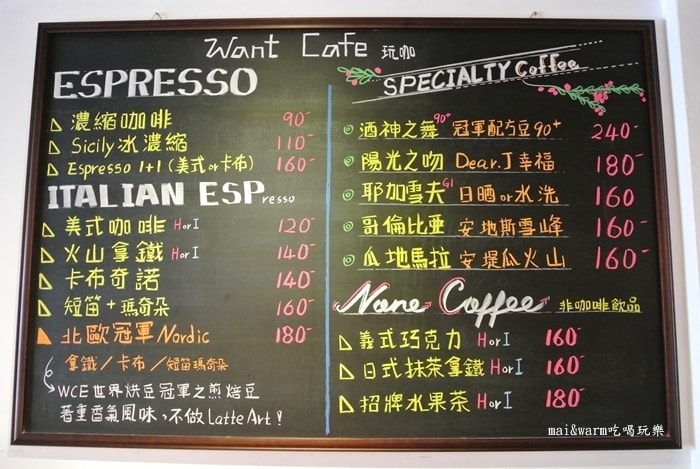 Want Cafe 玩咖
ESPRESSO
濃縮咖啡 90-
Sicily冰濃縮 110-
Espresso 1+1 (美式or卡布) 160-
ITALIAN ESPresso
美式咖啡 HorI 120-
火山拿鐵 HorI 140-
卡布奇諾 140-
短笛+瑪奇朵 160-
北歐冠軍Nordic 180-
拿鐵/卡布/短笛瑪奇朵
WCE世界烘豆冠軍之煎焙豆
著重香氣風味、不做LatteArt!
SPECIALTY Coffee
酒神之舞90+ 冠軍配方豆90+ 240-
陽光之吻 Dear.J幸福 180-
耶加雪夫G1 日晒or水洗 160
哥倫比亞 安地斯雪峰 160-
瓜地馬拉 安堤瓜火山 160-
None Coffee 非咖啡飲品
義式巧克力 HorI 160-
日式抹茶拿鐵 HorI 160-
招牌水果茶 HorI 180-
mai&warm吃喝玩樂